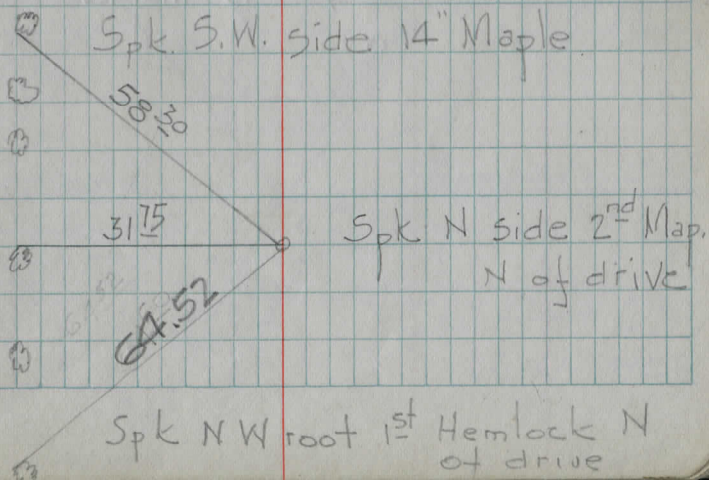 Spk. S.W. side 14" Maple
58 30
31 75
Spk N side 2nd Map.
N of drive
64.52
Spk N W root 1st Hemlock N
of drive